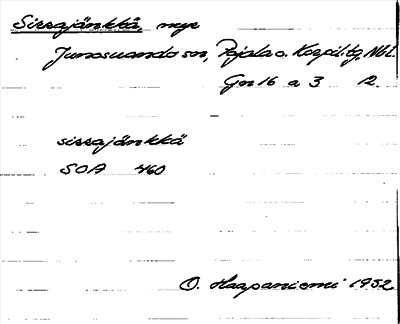 Sissajänkkä, myr
Junosuando sn, Pajala o. Korpil. tg, Nbl.
Gn 16 a 3 12
sissajänkkä
SOA 460
O. Haapaniemi 1932